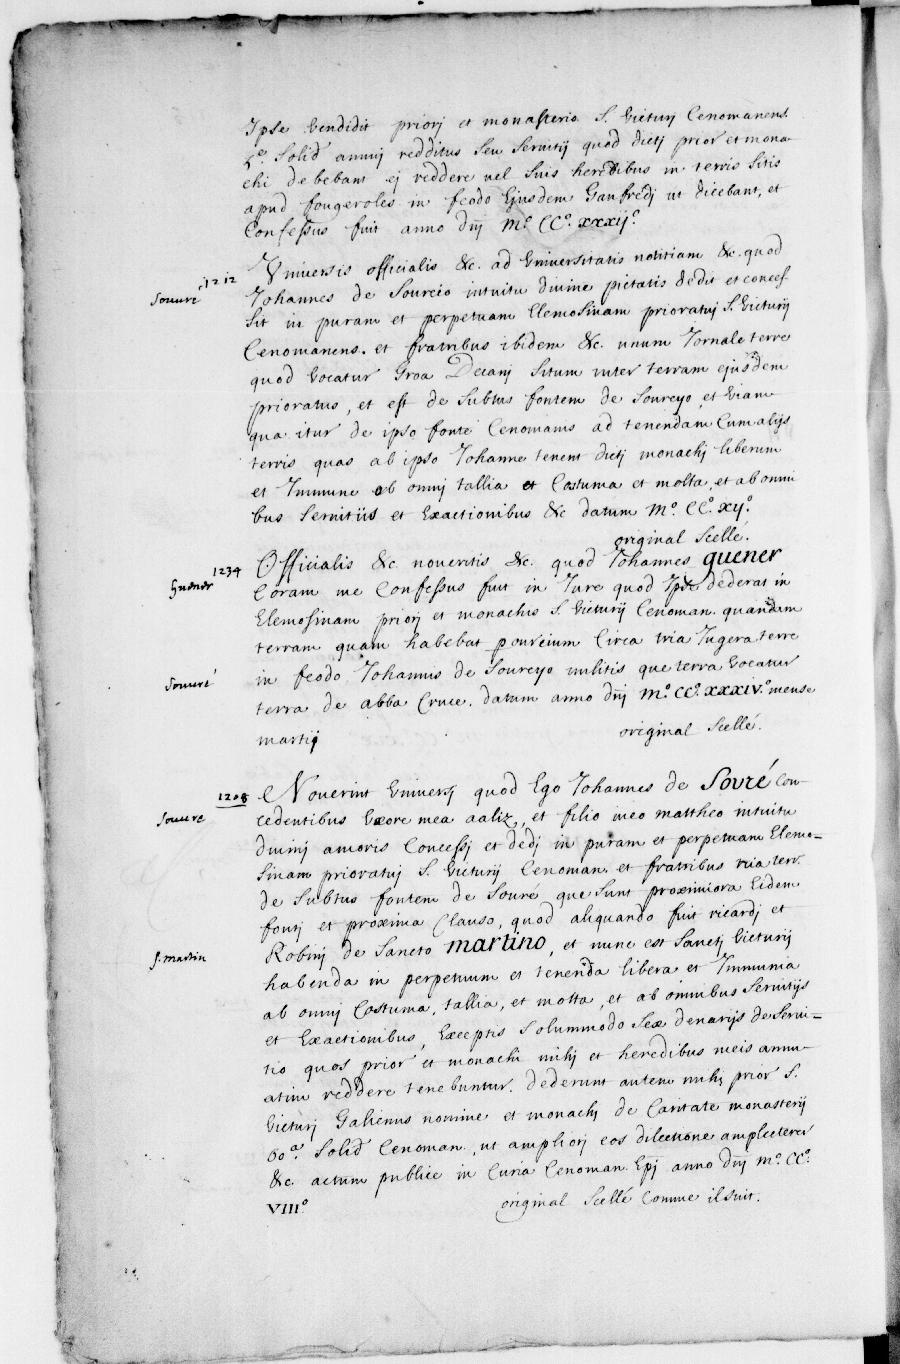 Ipse Vendidit priorj et monasterio S. Victurj Cenomanens.
5º. Solid annuj redditus Seu Servitij quod dictj prior et mona-
chi debebant ej reddere vel Suis heredibus in terris Sitis
apud fougeroles in feodo Ejusdem Gaufredj ut dicebant, et
Confessus fuit anno dnj Mº. CCº. xxxijº.
Universis officialis &c. ad Universitatis notitiam &c. quod
1212
Souvré
Johannes de Soureio intuitu divine pietatis dedit et conces-
sit in puram et perpetuam Elemosinam prioratuj S. Victurij
Cenomanens. et fratribus ibidem &c. unum Jornale terre
quod Vocatur Groa Decanj Situm inter terram ejusdem
prioratus, et est de Subtus fontem de Soureyo, et Viam
qua itur de ipso fonte Cenomanis ad tenendam Cum alijs
terris quas ab ipso Johanne tenent dictj monachj liberum
et Immune ab omnj tallia et Costuma et molta, et ab omni
bus Servitiis et Exactionibus &c datum Mº. CCº. xijº.
original Scellé.
Officialis &c noveritis &c. quod Johannes quener
1234
Guener
Coram me Confessus fuit in Jure quod Ipse dederat in
Elemosinam priorj et monachis S. Victurij Cenoman. quandam
terram quam habebat pourcium Circa tria Jugera terre
in feodo Johannis de Soureyo militis que terra Vocatur
Souvré
terra de abba Cruce. datum anno dnj Mº. CCº. xxxiv.º mense
martij original Scellé.
Noverint Universj quod Ego Johannes de Sovré Con-
1208
Souvre
cedentibus Vxore mea aaliz, et filio meo mattheo intuitu
divinj amoris Concessj et dedj in puram et perpetuam Elemo-
sinam prioratuj S. Victurij Cenoman. et fratribus tria terr.
de Subtus fontem de Souré que Sunt proximiora Eidem
fontj et proxima Clauso, quod aliquando fuit ricardj et
Robinj de Sancto martino, et nunc est Sanctj Victurij
S. martin
habenda in perpetuum et tenenda libera et Immunia
ab omnj Costuma, tallia, et molta, et ab omnibus Servitijs
et Exactionibus, Exceptis Solummodo Sex denarijs de Servi-
tio quos prior et monachi mihj et heredibus meis annu-
atim reddere tenebuntur. dederunt autem mihj prior S.
Victurj Galienus nomine et monachj de Caritate monasterij
60ª. Solid Cenoman., ut ampliorj eos dilectione amplecterer
&c. actum publice in Curia Cenoman. Epj anno dnj Mº. CCº.
VIIIº original Scellé Comme il Suit.